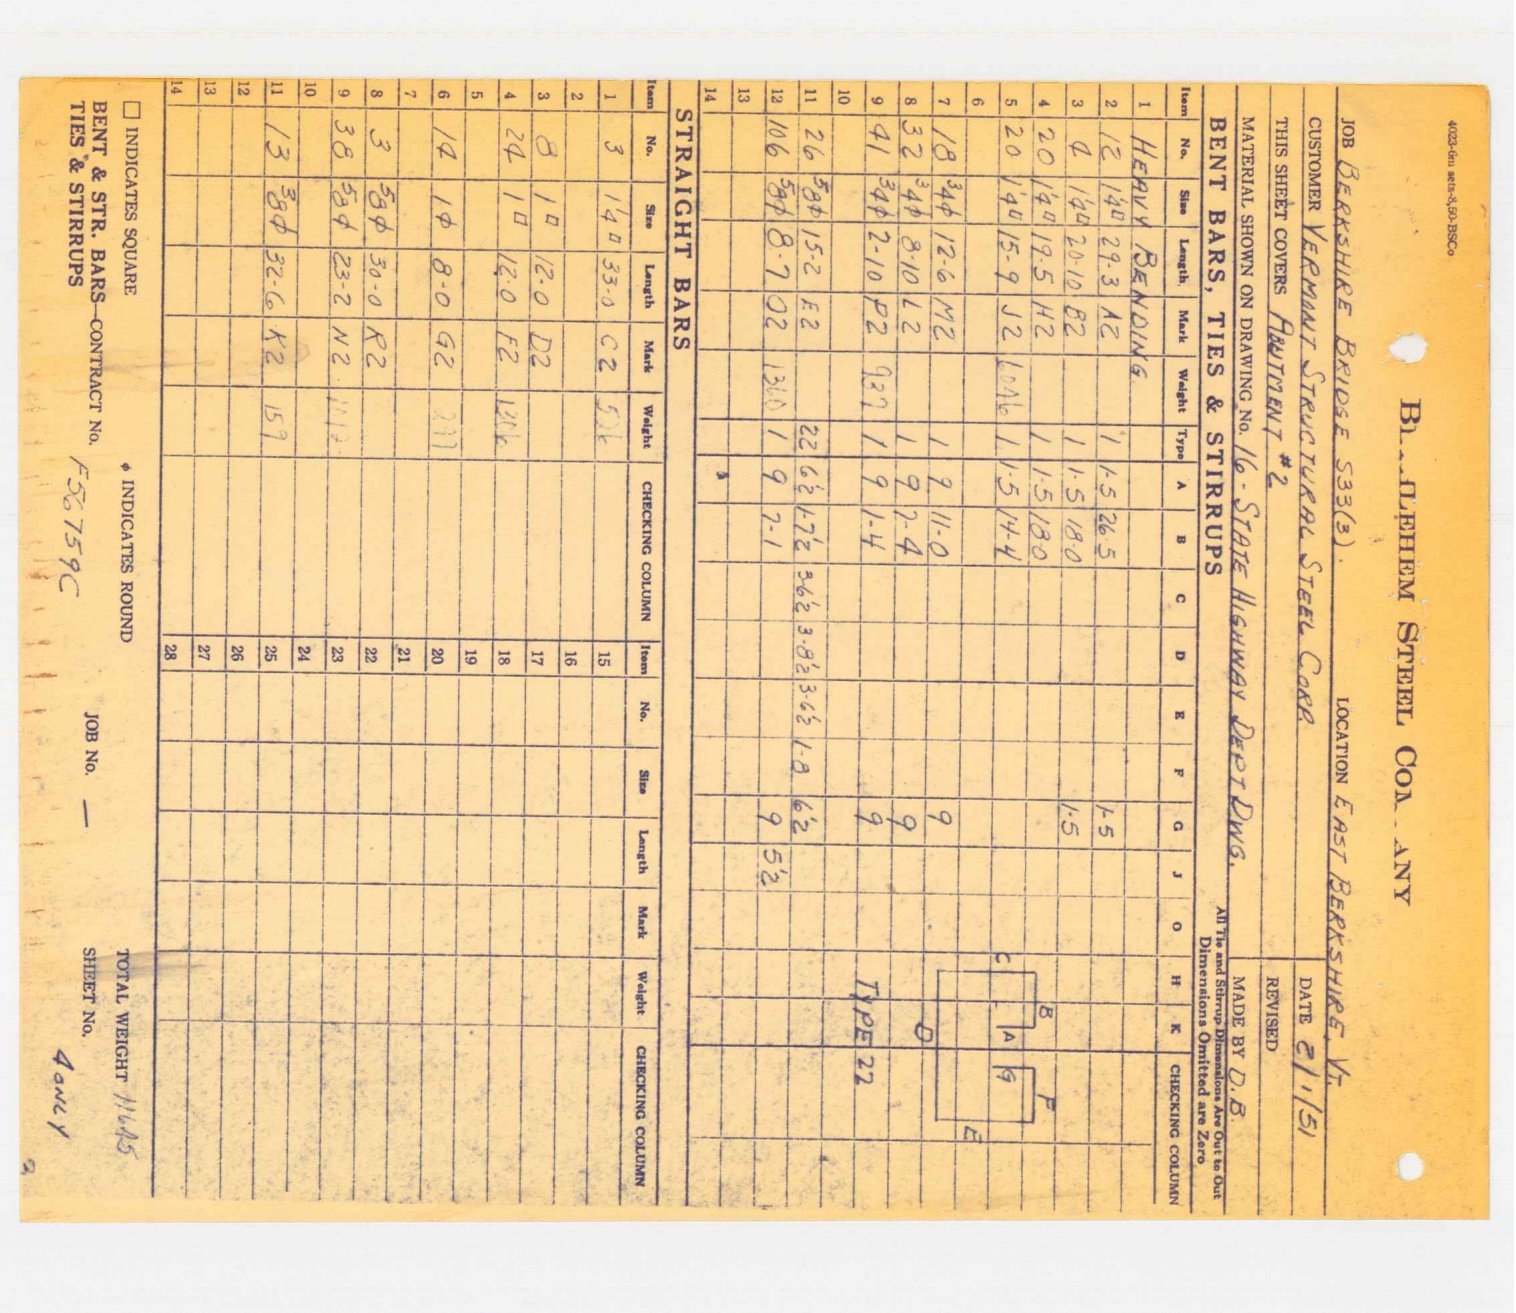 4023-6m sets-8,50-BSCo
STEEL
JOB BERKSHIRE BRIDGE S33(3). LOCATION EAST BERKSHIRE, VT.
CUSTOMER VERMONT STRUCTURAL STEEL CORP. DATE 2/1/51
THIS SHEET COVERS ABUTMENT #2 REVISED
MATERIAL SHOWN ON DRAWING No. 16 - STATE HIGHWAY DEPT DWG. MADE BY D.B.
BENT BARS, TIES & STIRRUPS All Tie and Stirrup Dimensions Are Out to Out
Dimensions Omitted are Zero
Item No. Size Length Mark Weight Type A B C D E F G J O H K CHECKING COLUMN
1 HEAVY BENDING
2 12 1¼□ 29-3 A2 1 1-5 26-5 1-5
3 4 1¼□ 20-10 B2 1 1-5 18-0 1-5
4 20 1¼□ 19-5 H2 1 1-5 18-0
5 20 1¼□ 15-9 J2 1 1-5 14-4
6
7 18 ¾ϕ 12-6 M2 1 9 11-0 9
8 32 ¾ϕ 8-10 L2 1 9 7-4 9
9 41 ¾ϕ 2-10 P2 937 1 9 1-4 9
10
11 26 ⅝ϕ 15-2 E2 22 6½ 1-7½ 3-6½ 3-8½ 3-6½ 1-8 6½
12 106 ⅝ϕ 8-7 O2 1 9 7-1 9 5½
13
14
C B A D G F E
TYPE 22
STRAIGHT BARS
Item No. Size Length Mark Weight CHECKING COLUMN Item No. Size Length Mark Weight CHECKING COLUMN
1 3 1¼□ 33-0 C2 15
2 16
3 8 1□ 12-0 D2 17
4 24 1□ 12-0 F2 18
5 19
6 14 1ϕ 8-0 G2 20
7 21
8 3 ⅝ϕ 30-0 R2 22
9 38 ⅝ϕ 23-2 N2 23
10 24
11 13 ⅜ϕ 32-6 K2 159 25
12 26
13 27
14 28
□ INDICATES SQUARE ϕ INDICATES ROUND TOTAL WEIGHT
BENT & STR. BARS—CONTRACT No. F56759C JOB No. — SHEET No. 4 ONLY
TIES & STIRRUPS